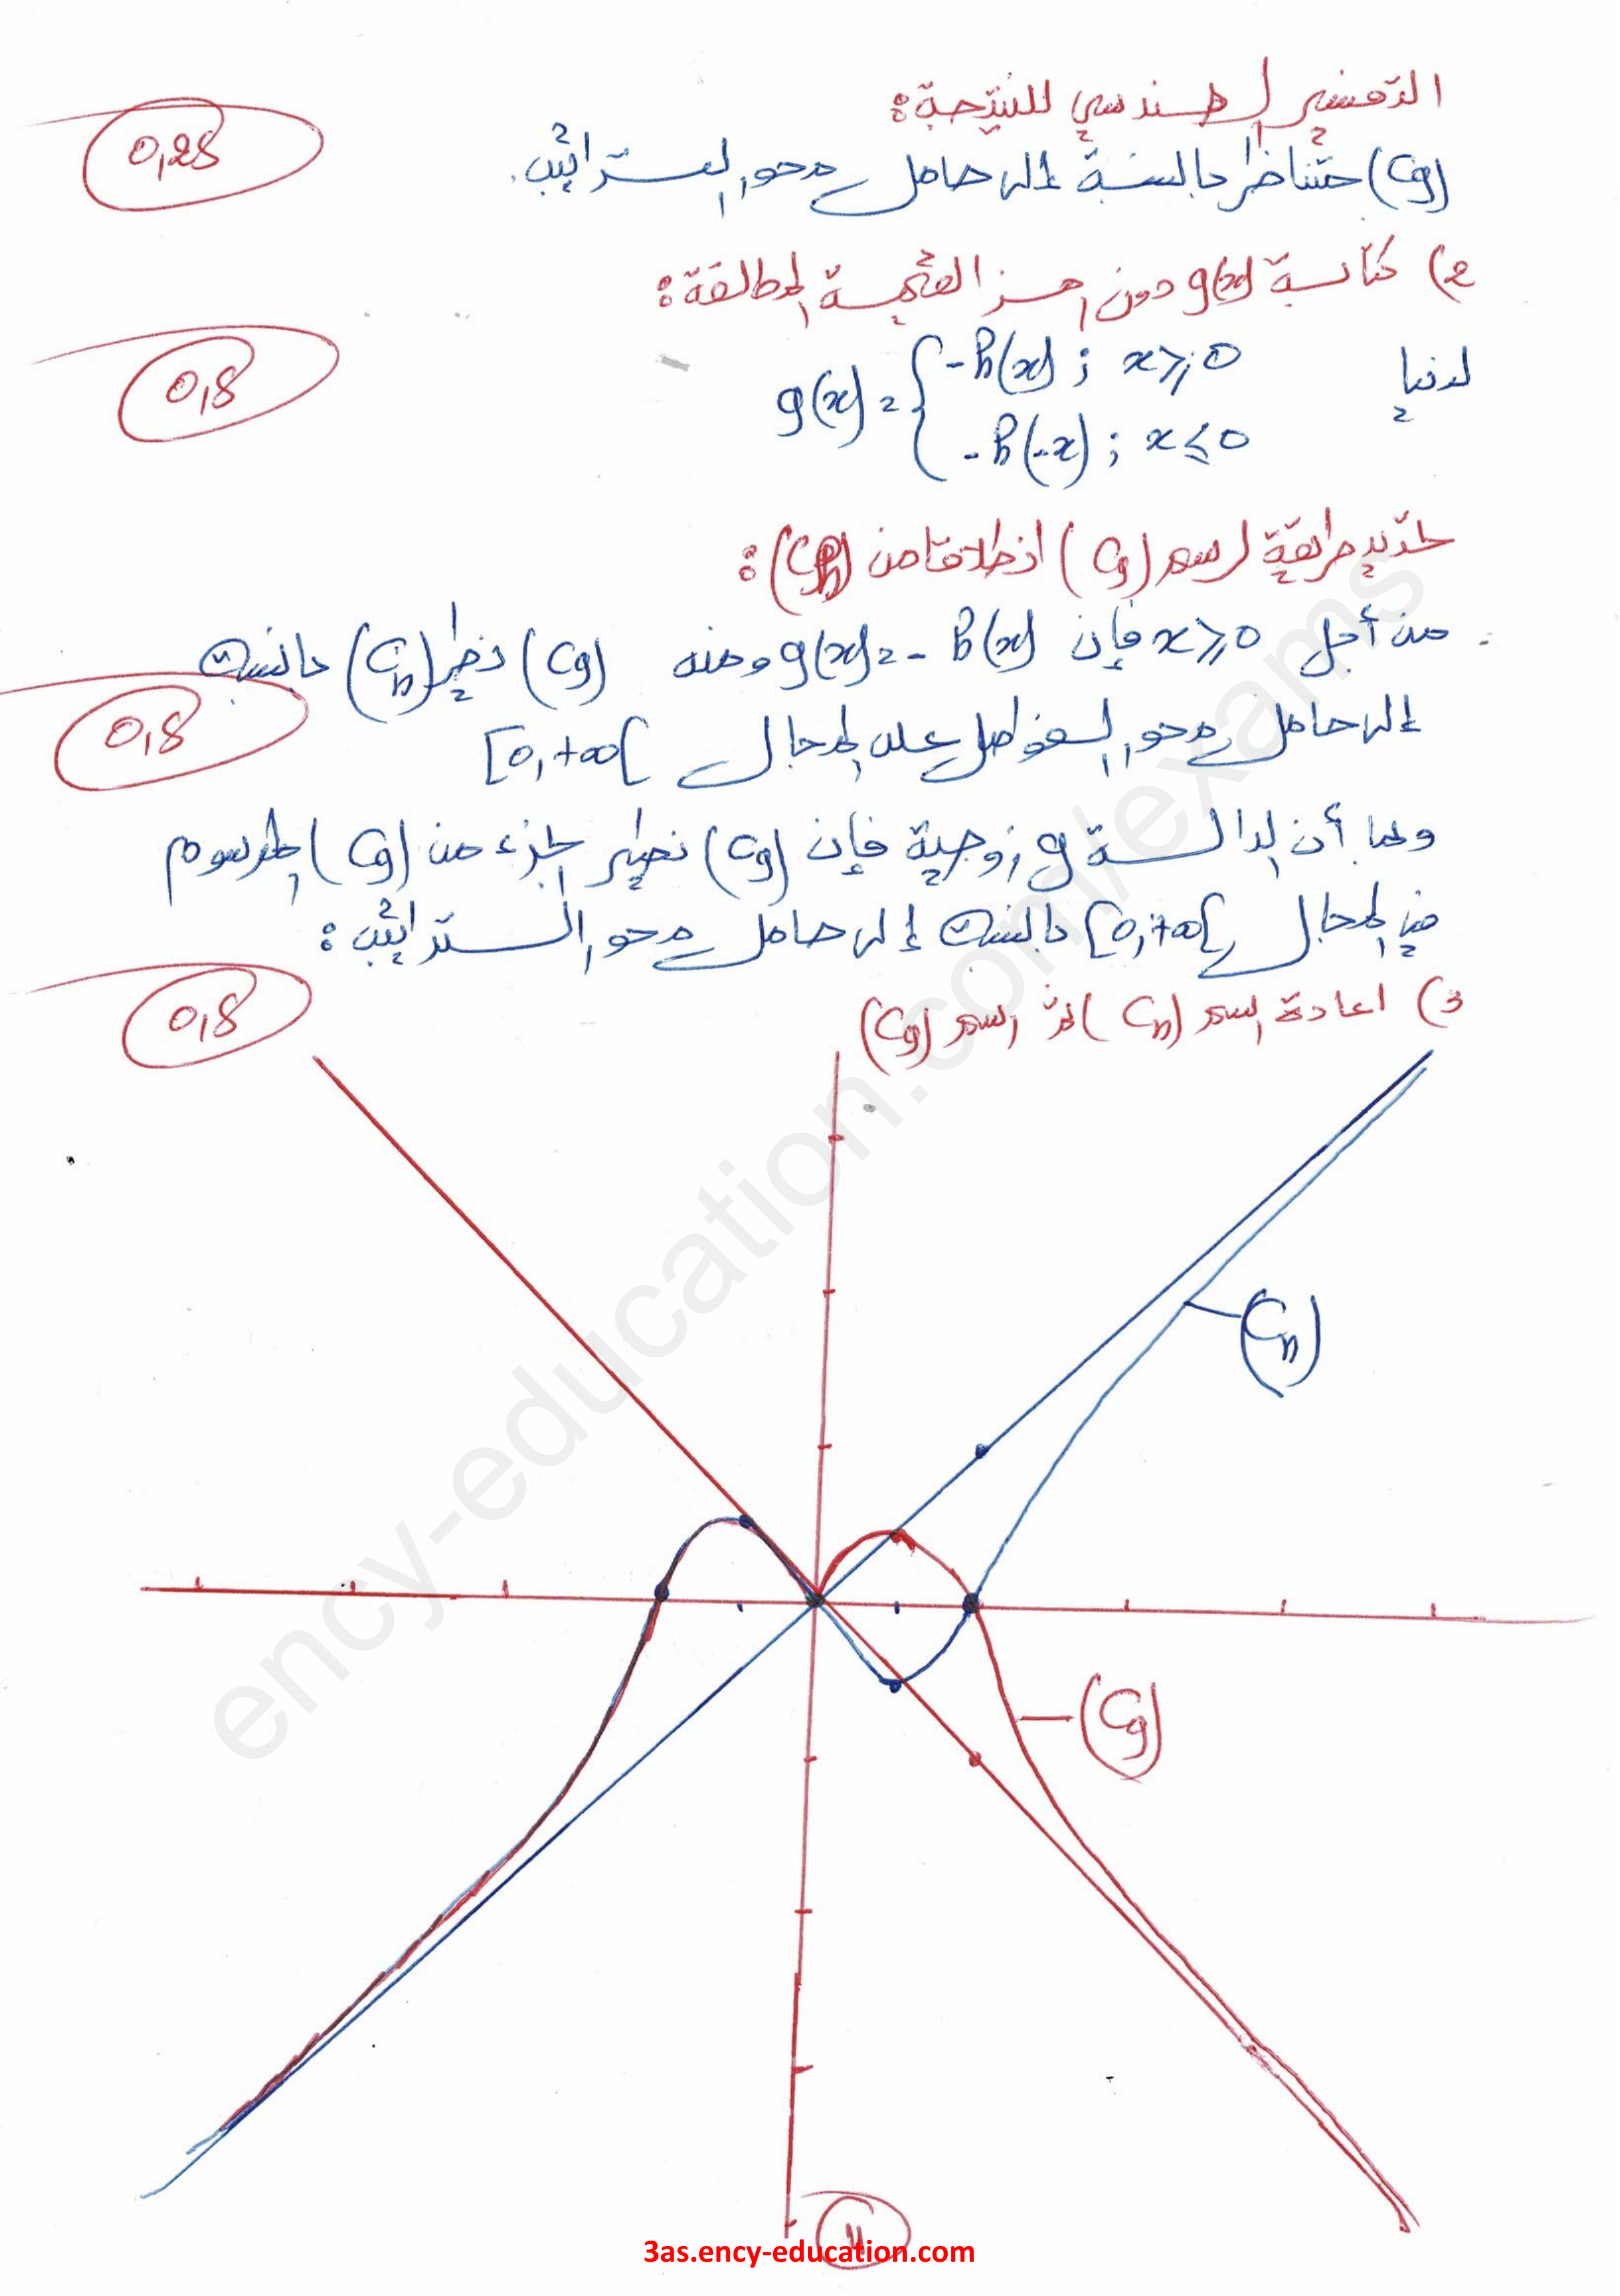 التفسير الهندسي للنتيجة:
(Cg) متناظر بالنسبة إلى حامل محور التراتيب.
0,25
2) كتابة g(x) دون رمز القيمة المطلقة:
لدينا g(x) = { -h(x) ; x ⩾ 0
-h(-x) ; x ⩽ 0
0,5
تحديد طريقة رسم (Cg) انطلاقا من (Ch):
من أجل x ⩾ 0 فإن g(x) = -h(x) ومنه (Cg) نظير (Ch) بالنسبة
إلى حامل محور الفواصل على المجال [0,+∞[
0,5
وبما أن الدالة g زوجية فإن (Cg) نظير الجزء من (Cg) المرسوم
في المجال [0,+∞[ بالنسبة إلى حامل محور التراتيب:
3) اعادة رسم (Ch) ثم رسم (Cg)
0,5
(Ch)
(Cg)
ency-education.com/exams
3as.ency-education.com